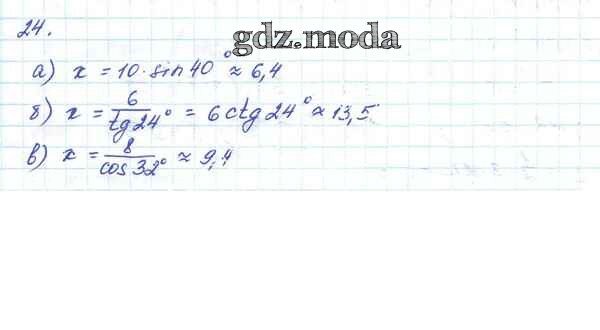 24.
gdz.moda
а) x = 10·sin 40° ≈ 6,4
б) x = 6/tg 24° = 6 ctg 24° ≈ 13,5
в) x = 8/cos 32° ≈ 9,4